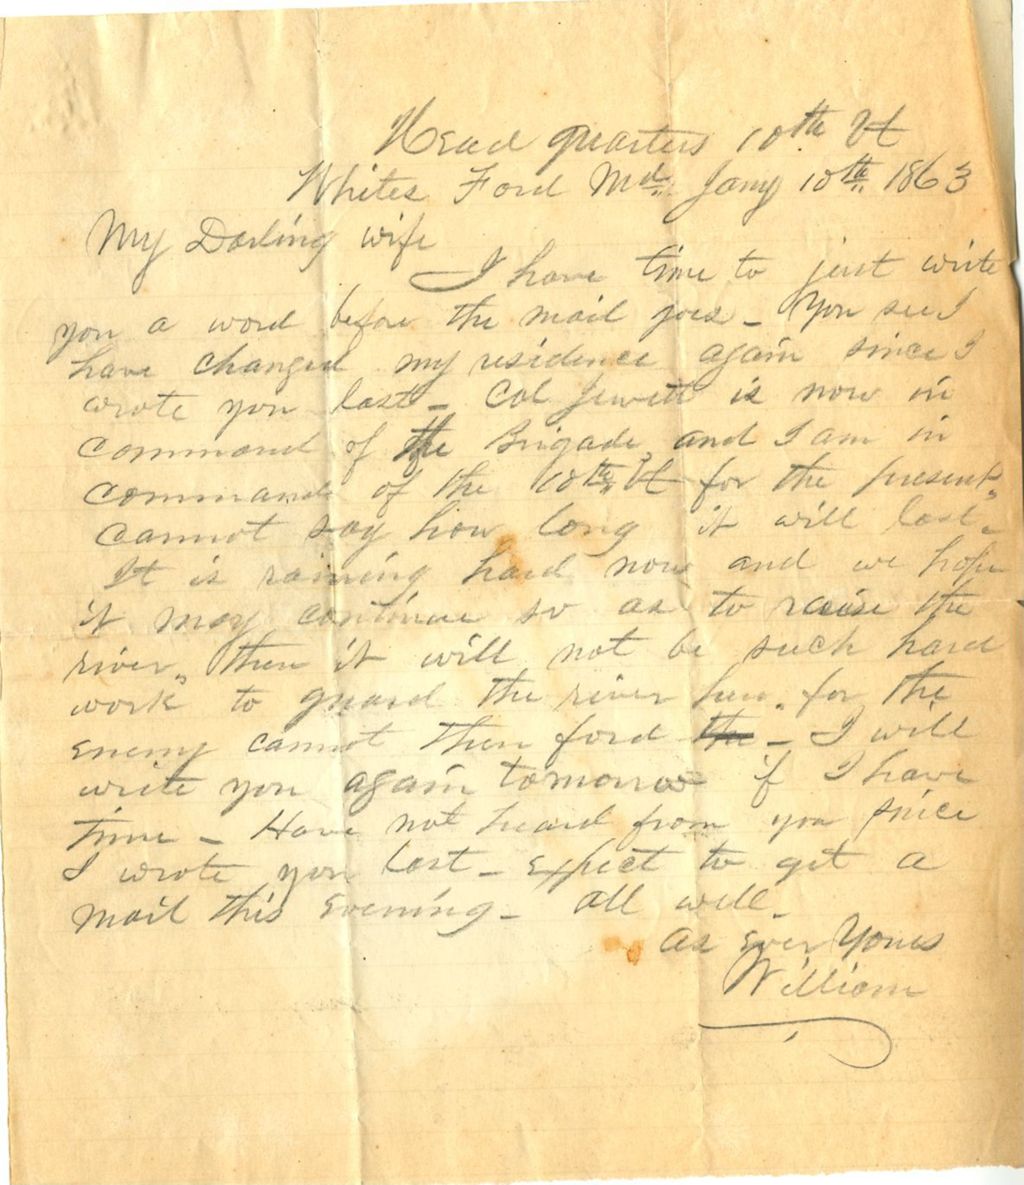 Head quarters 10th Vt
Whites Ford Md. Jany 10th 1863
My Darling wife
I have time to just write
you a word before the mail goes - You see I
have changed my residence again since I
wrote you last - Col Jewett is now in
command of the Brigade, and I am in
command of the 10th Vt for the present,
cannot say how long it will last.
It is raining hard now and we hope
it may continue so as to raise the
river, then it will not be such hard
work to guard the river here, for the
enemy cannot then ford - I will
write you again tomorrow if I have
time - Have not heard from you since
I wrote you last - Expect to get a
mail this evening - all well.
As ever Yours
William